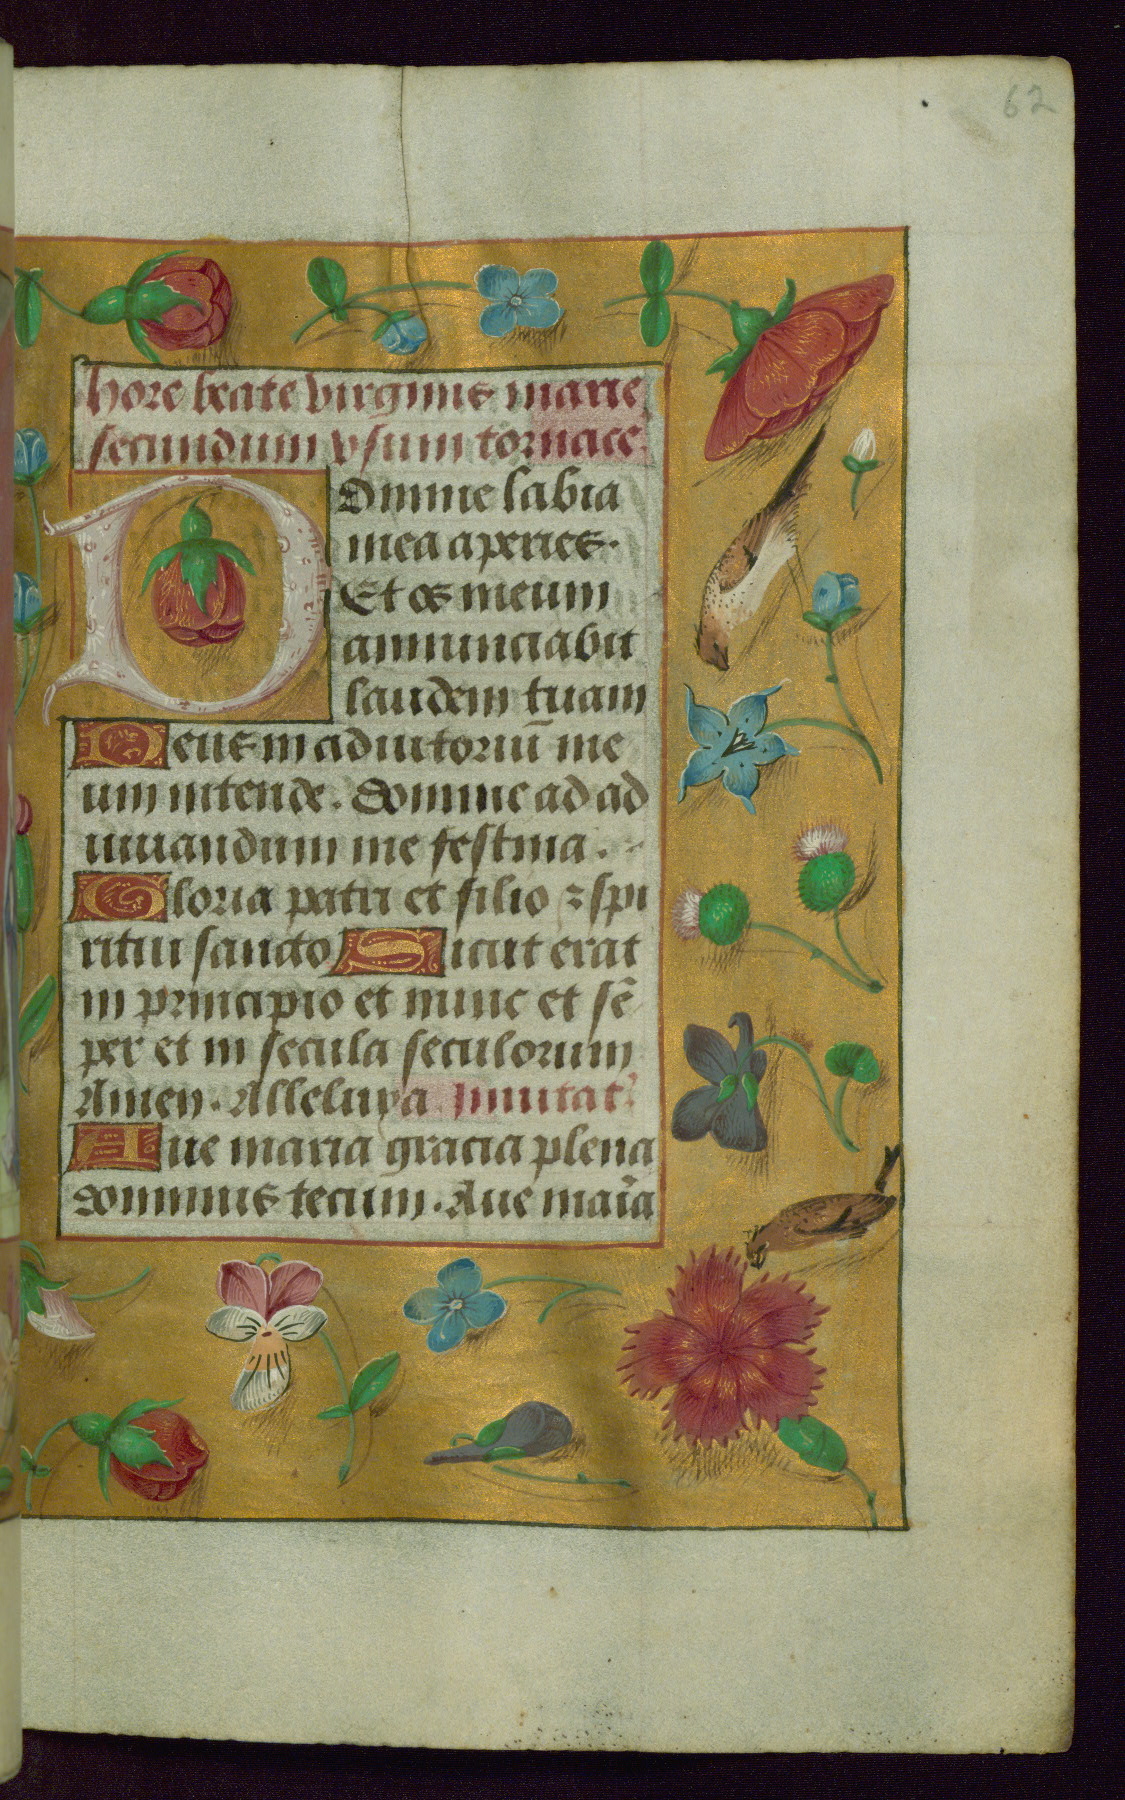 62
hore beate virginis marie
secundum vsum tornace.
Domine labia
mea aperies.
Et os meum
annunciabit
laudem tuam
Deus in adiutoriū me
um intende. Domine ad ad
iuuandum me festina.
Gloria patri et filio ⁊ spi
ritui sancto Sicut erat
in principio et nunc et sē
per et in secula seculorum
Amen. Alleluya Inuitat᷒
Aue maria gracia plena
dominus tecum. Aue mar̄ia